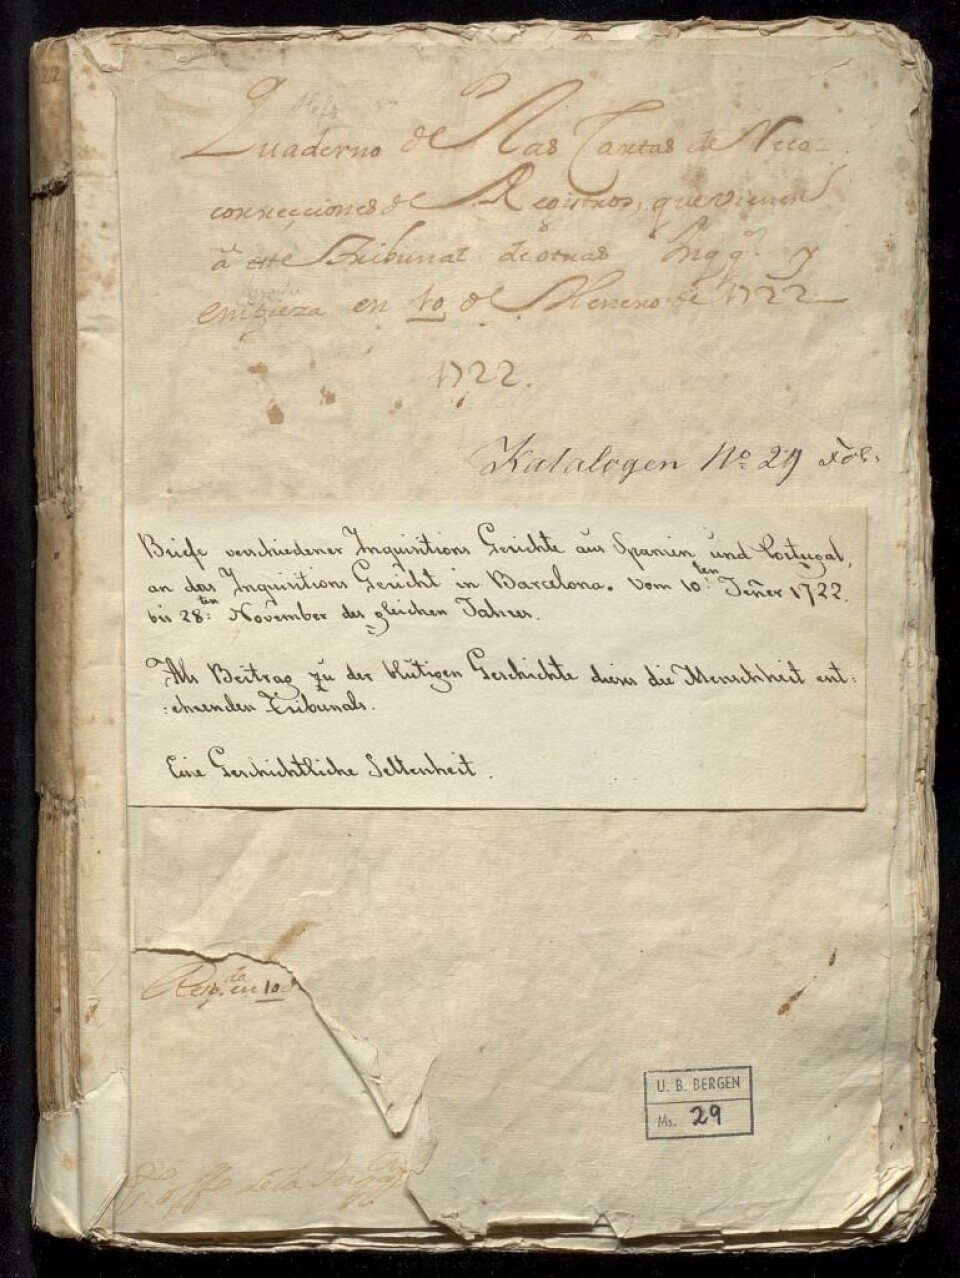 Quaderno de las Cartas de Reco-
correcciones de Registros, que vienen
â este Tribunal de otras Inqq.ⁿ y
empieza en 10 de Henero de 1722
1722.
Katalogen No 29 Fol.
Briefe verschiedener Inquisitions Gerichte aus Spanien und Portugal,
an das Inquisitions Gericht in Barcelona. Vom 10:ten Jeñer 1722.
bis 28:ten November des gleichen Jahres.
Als Beitrag zu der blutigen Geschichte dieses die Menschheit ent:
:ehrenden Tribunals.
Eine Geschichtliche Seltenheit.
Resp.da en 10 d
U. B. BERGEN
Ms. 29
22
de la